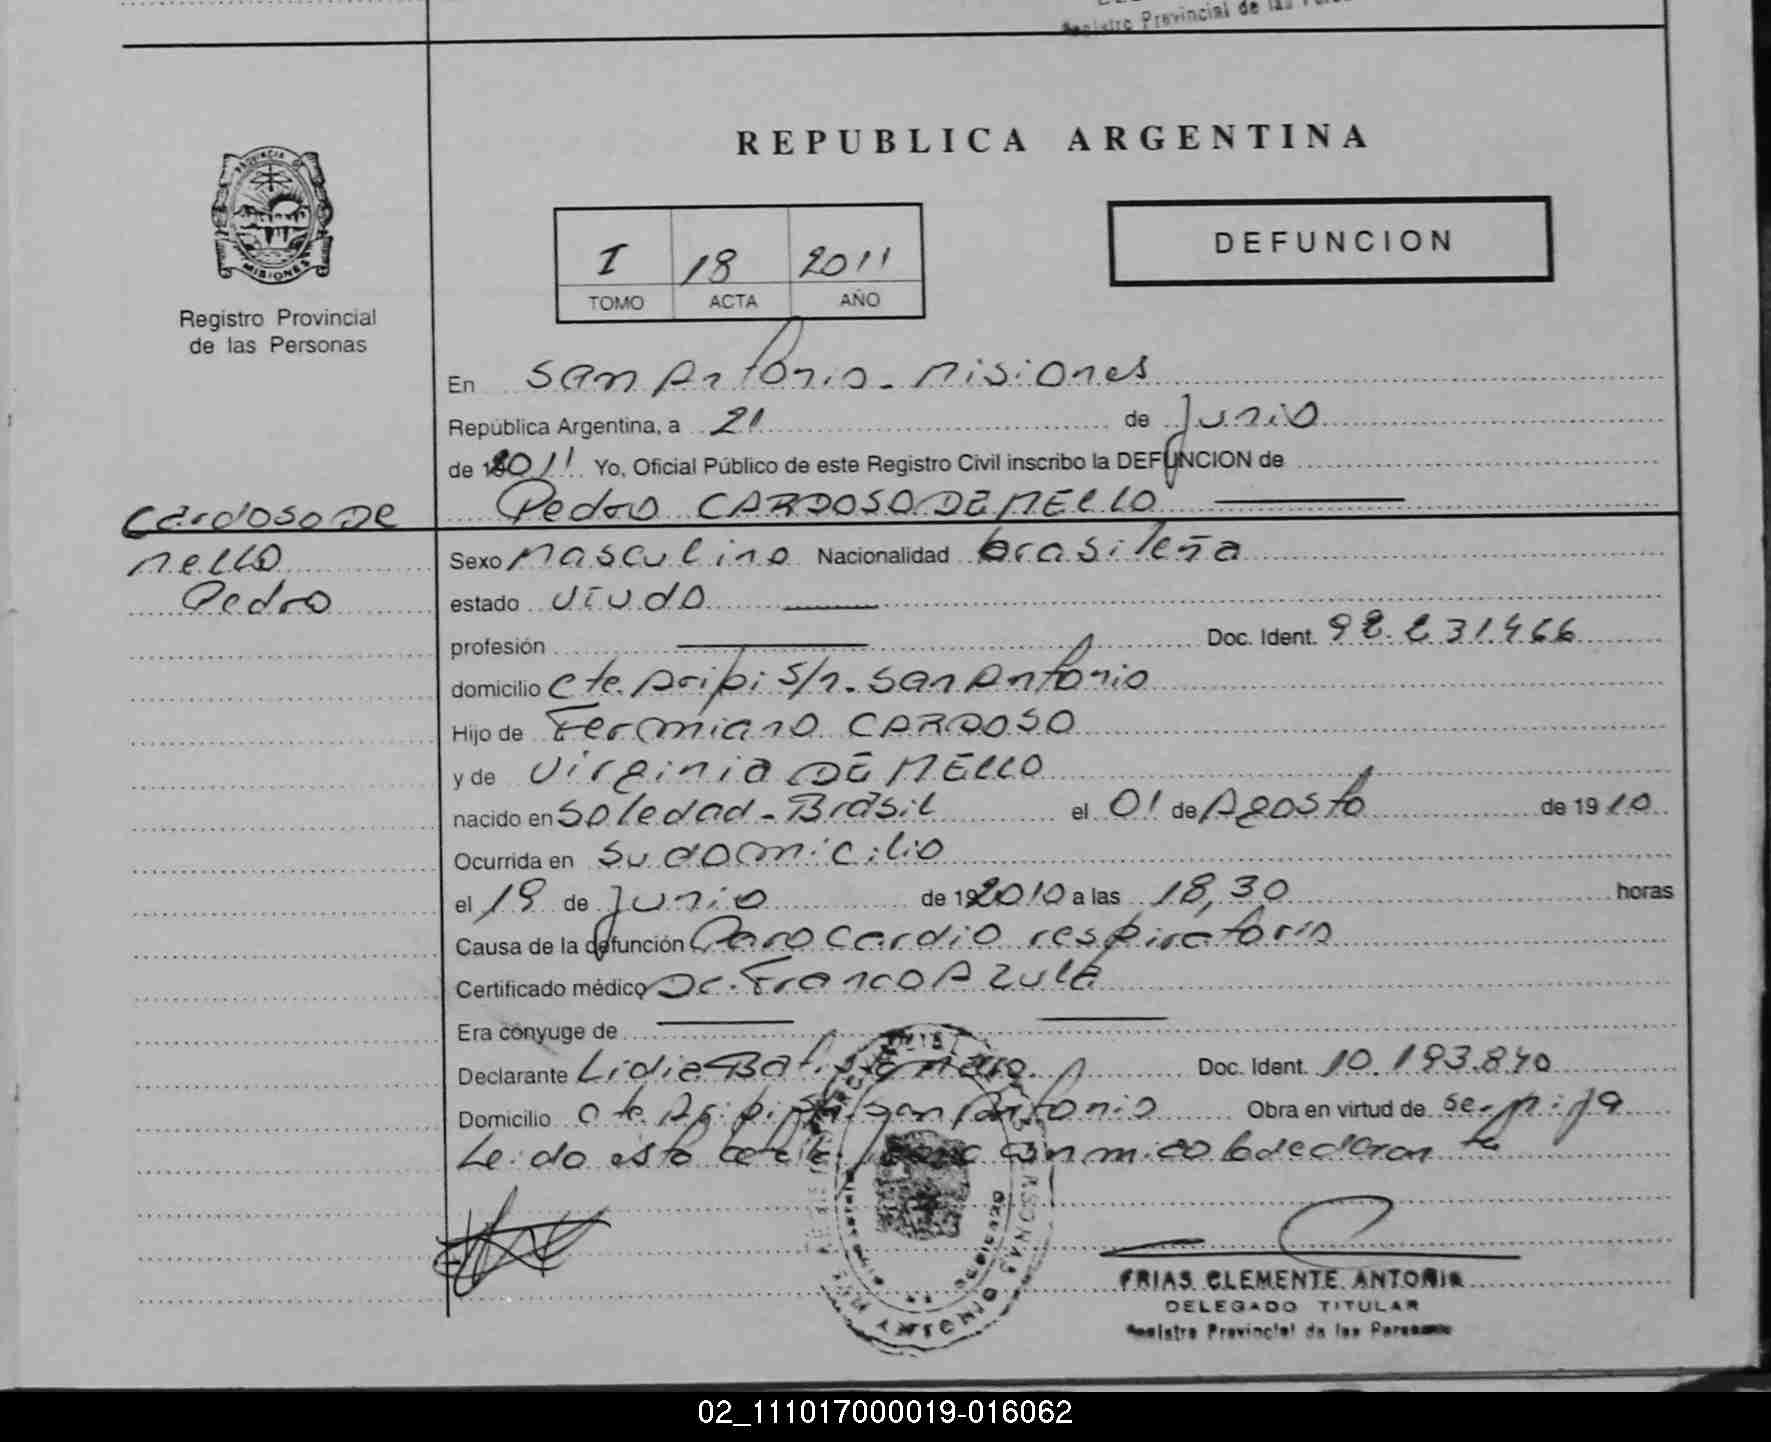 Registro Provincial de las
REPUBLICA ARGENTINA
PROVINCIA DE
MISIONES
Registro Provincial
de las Personas
I 18 2011
TOMO ACTA AÑO
DEFUNCION
En San Antonio - Misiones
República Argentina, a 21 de Junio
de 2011 Yo, Oficial Público de este Registro Civil inscribo la DEFUNCION de
Pedro CARDOSO DE MELLO
Cardoso DE
Mello
Pedro
Sexo Masculino Nacionalidad brasileña
estado viudo
profesión Doc. Ident.
domicilio Cte. Aripi S/n. San Antonio
Hijo de Fermiano CARDOSO
y de Virginia DE MELLO
nacido en Soledad - Brasil el 01 de Agosto de 1910
Ocurrida en su domicilio
el 19 de Junio de 192010 a las 18,30 horas
Causa de la defunción Paro Cardio respiratorio
Certificado médico Dr. Franco Azula
Era cónyuge de
Declarante Lidia Doc. Ident. 10.193.840
Domicilio Cte Aripi San Antonio Obra en virtud de
Leido esta conmico declarante
FRIAS CLEMENTE ANTONIO
DELEGADO TITULAR
Registro Provincial de las Personas
02_111017000019-016062